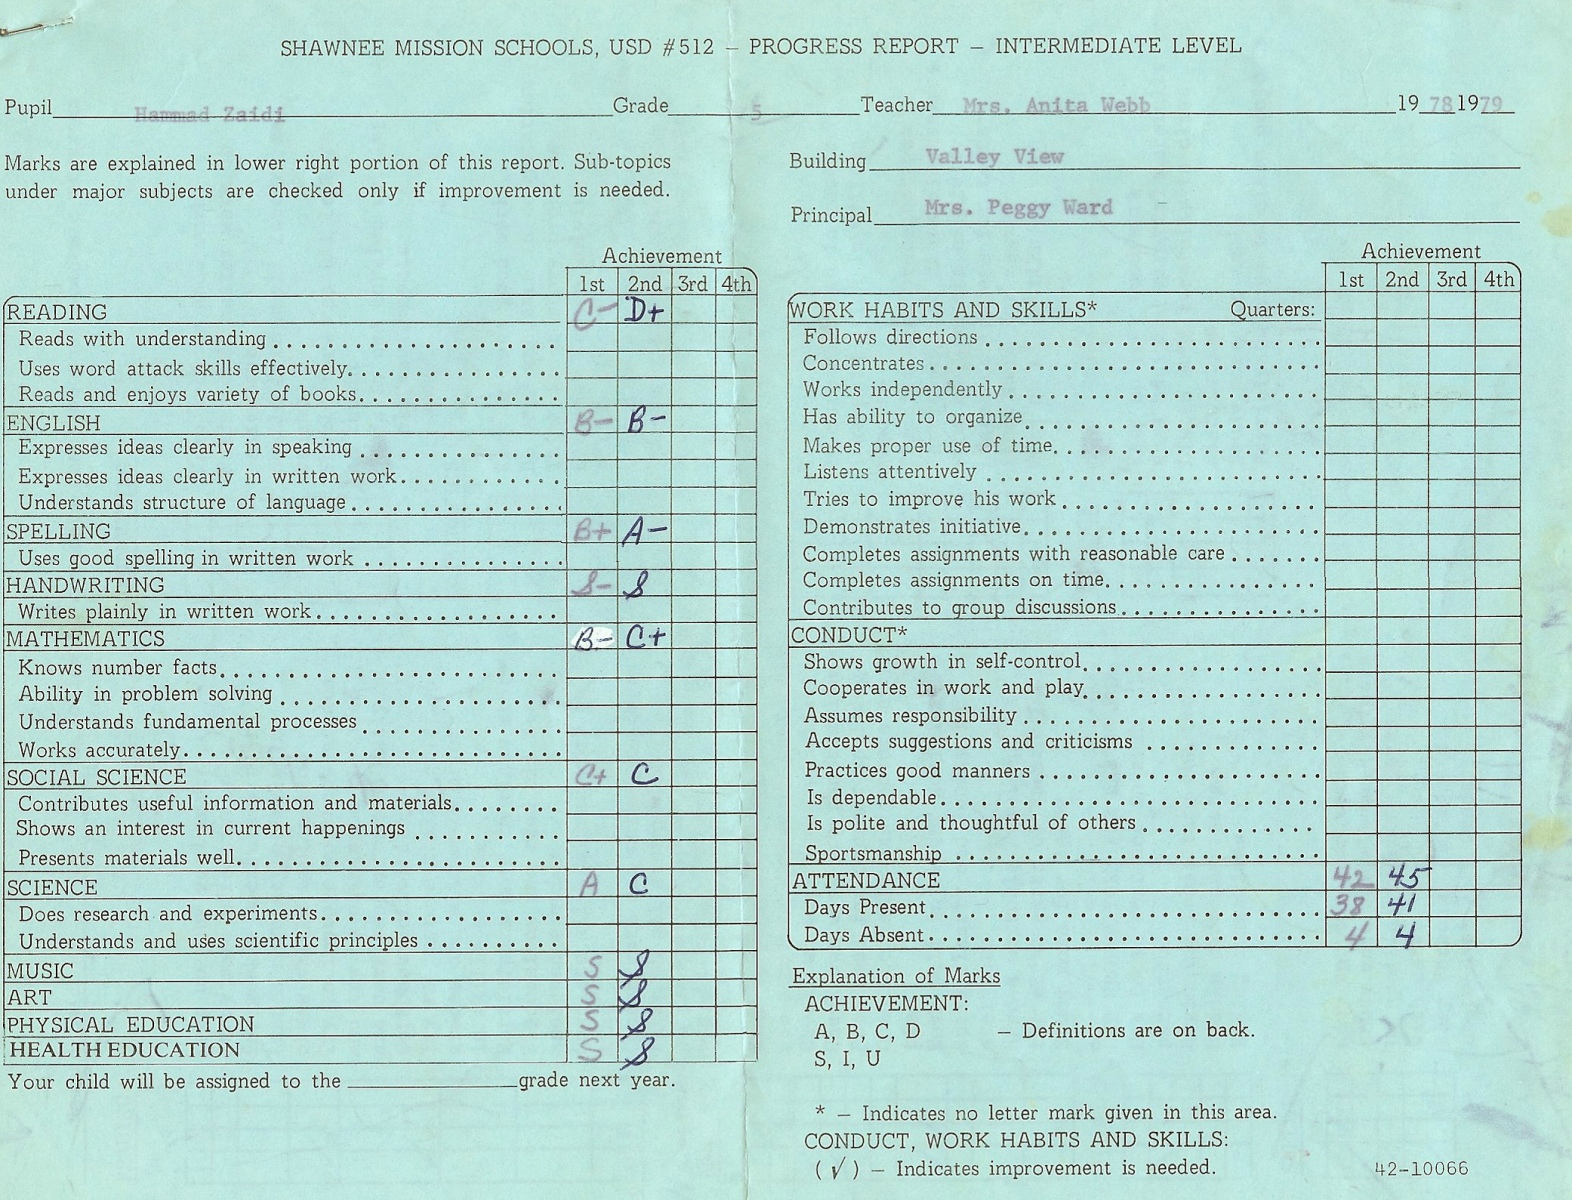 SHAWNEE MISSION SCHOOLS, USD #512 – PROGRESS REPORT – INTERMEDIATE LEVEL
Pupil Hammad Zaidi Grade 5 Teacher Mrs. Anita Webb 19 78 19 79
Marks are explained in lower right portion of this report. Sub-topics
under major subjects are checked only if improvement is needed.
Building Valley View
Principal Mrs. Peggy Ward
Achievement
1st 2nd 3rd 4th
READING C- D+
Reads with understanding
Uses word attack skills effectively.
Reads and enjoys variety of books.
ENGLISH B- B-
Expresses ideas clearly in speaking
Expresses ideas clearly in written work.
Understands structure of language
SPELLING B+ A-
Uses good spelling in written work
HANDWRITING S- S
Writes plainly in written work
MATHEMATICS B- C+
Knows number facts
Ability in problem solving
Understands fundamental processes
Works accurately
SOCIAL SCIENCE C+ C
Contributes useful information and materials
Shows an interest in current happenings
Presents materials well
SCIENCE A C
Does research and experiments
Understands and uses scientific principles
MUSIC S S
ART S S
PHYSICAL EDUCATION S S
HEALTH EDUCATION S S
Your child will be assigned to the grade next year.
Achievement
1st 2nd 3rd 4th
WORK HABITS AND SKILLS* Quarters:
Follows directions
Concentrates
Works independently
Has ability to organize
Makes proper use of time
Listens attentively
Tries to improve his work
Demonstrates initiative
Completes assignments with reasonable care
Completes assignments on time
Contributes to group discussions
CONDUCT*
Shows growth in self-control
Cooperates in work and play
Assumes responsibility
Accepts suggestions and criticisms
Practices good manners
Is dependable
Is polite and thoughtful of others
Sportsmanship
ATTENDANCE 42 45
Days Present 38 41
Days Absent 4 4
Explanation of Marks
ACHIEVEMENT:
A, B, C, D – Definitions are on back.
S, I, U
* – Indicates no letter mark given in this area.
CONDUCT, WORK HABITS AND SKILLS:
(√) – Indicates improvement is needed.
42-10066